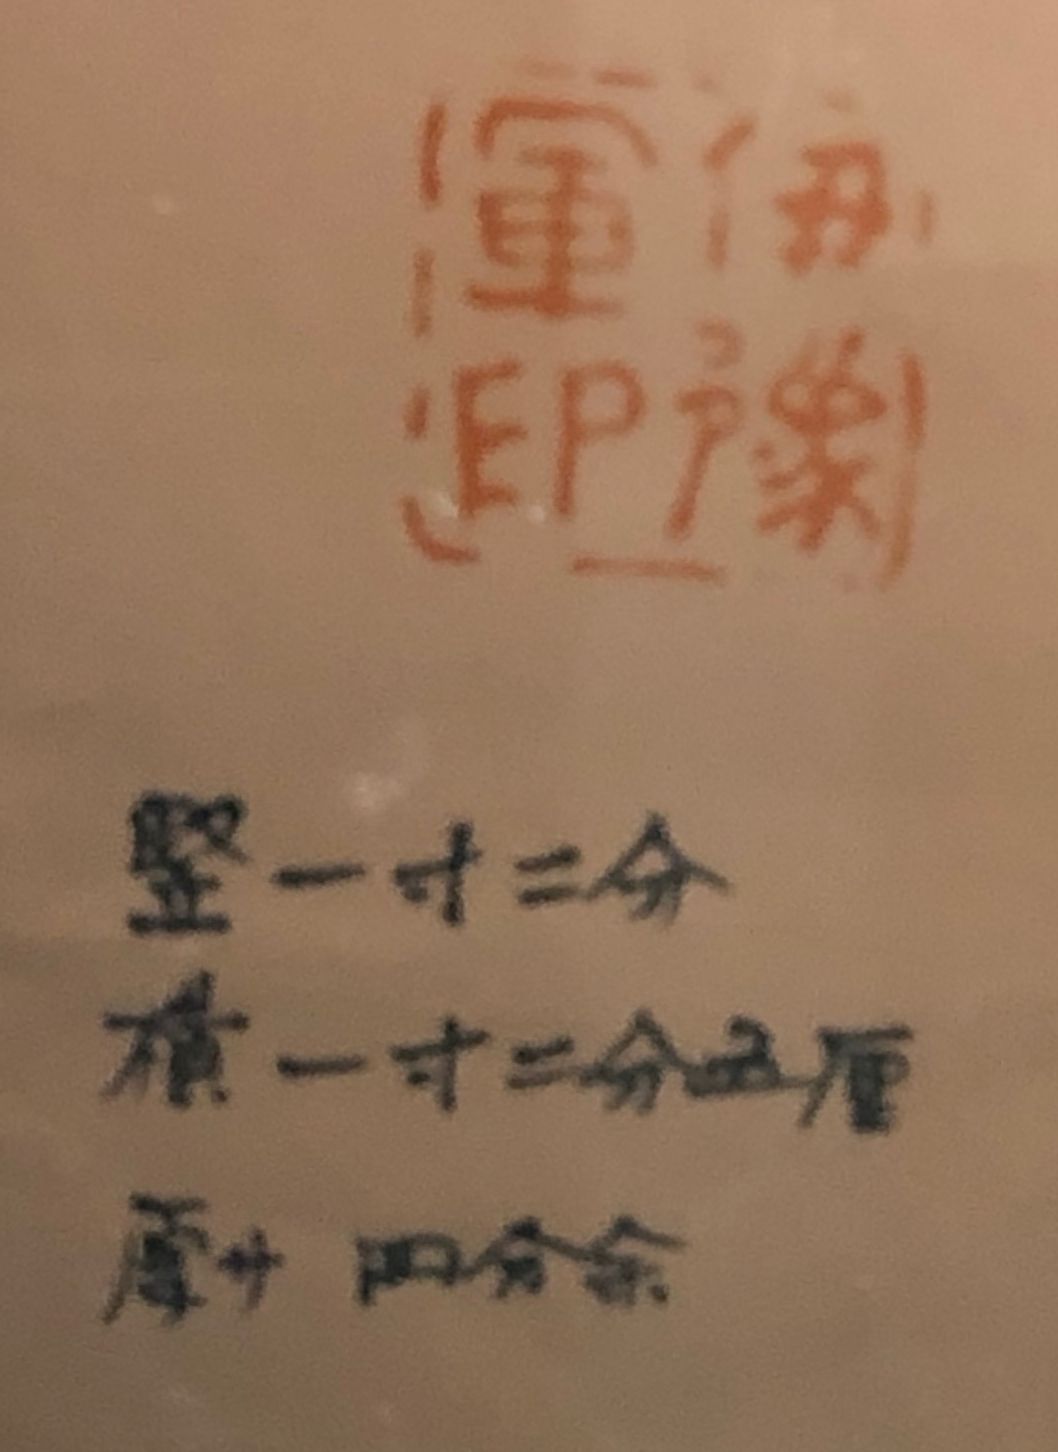 伊豫
軍印
竪一寸二分
横一寸二分五厘
厚サ 四分余